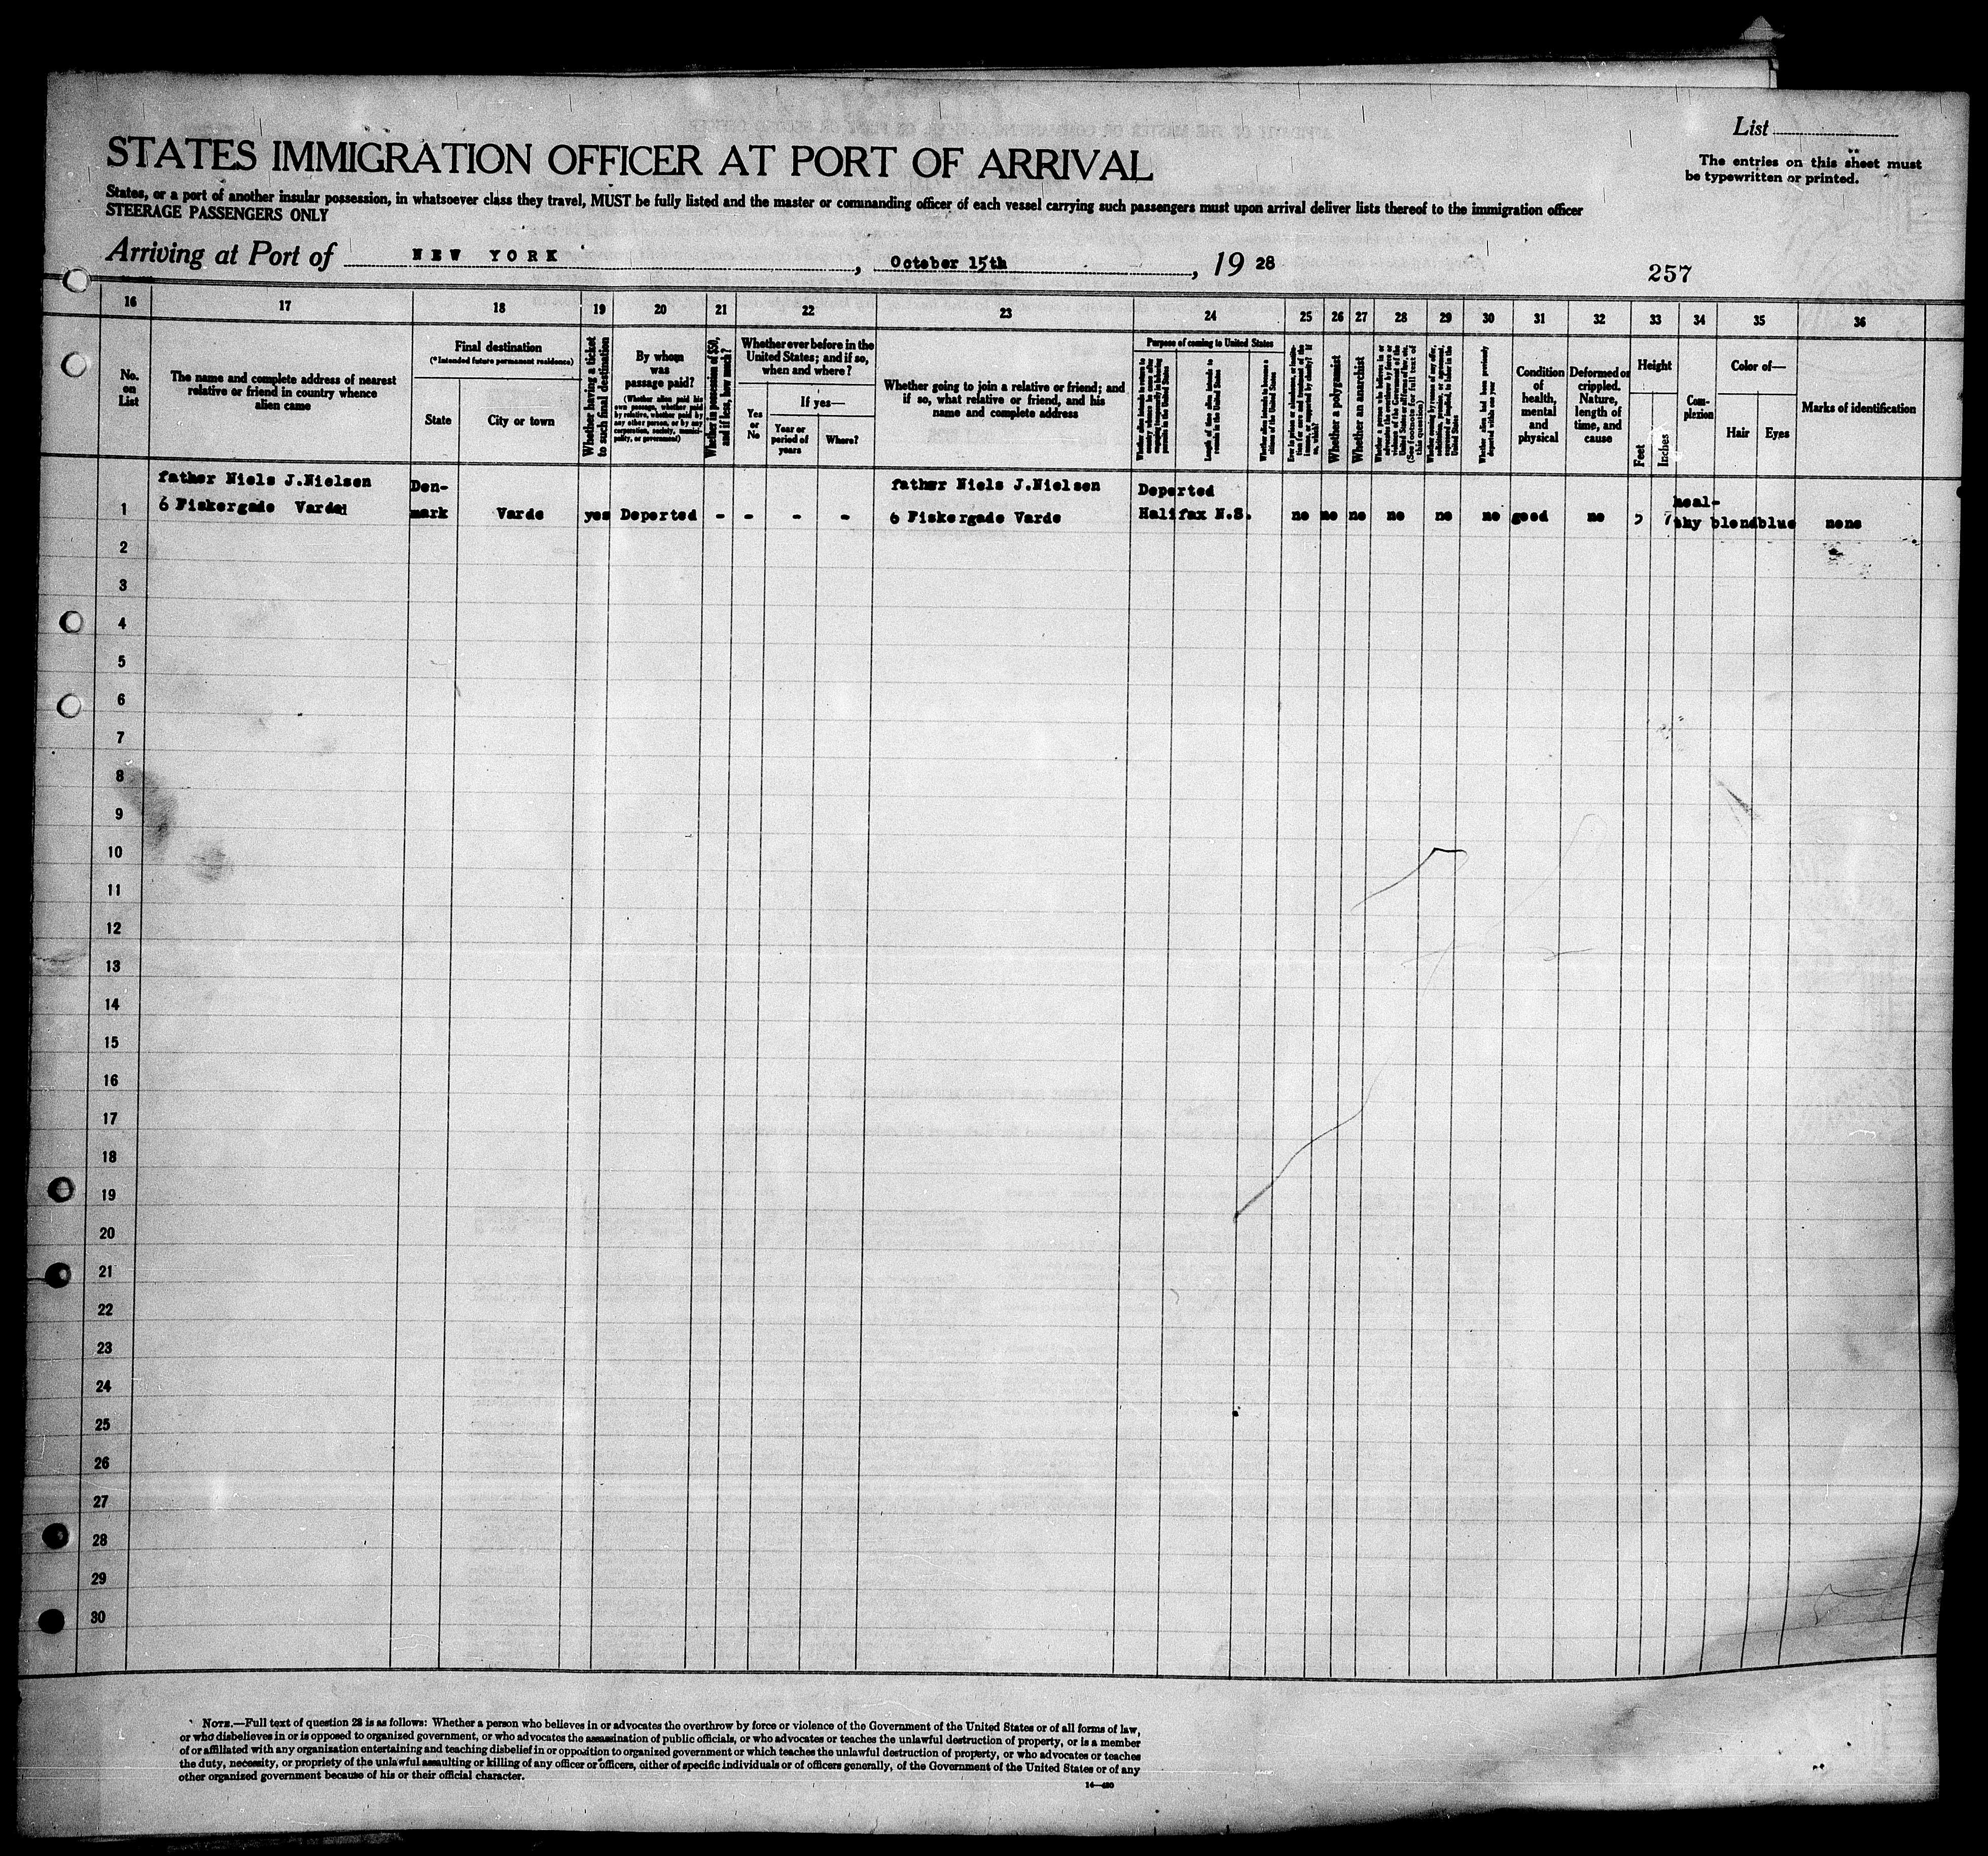 List
STATES IMMIGRATION OFFICER AT PORT OF ARRIVAL
The entries on this sheet must
be typewritten or printed.
States, or a port of another insular possession, in whatsoever class they travel, MUST be fully listed and the master or commanding officer of each vessel carrying such passengers must upon arrival deliver lists thereof to the immigration officer
STEERAGE PASSENGERS ONLY
Arriving at Port of NEW YORK, October 15th, 19 28
257
16 17 18 19 20 21 22 23 24 25 26 27 28 29 30 31 32 33 34 35 36
No.
on
List
The name and complete address of nearest
relative or friend in country whence
alien came
Final destination
(*Intended future permanent residence)
State
City or town
Whether having a ticket
to such final destination
By whom
was
passage paid?
(Whether alien paid his
own passage, whether paid
by relative, whether paid by
any other person, or by any
corporation, society, munici-
pality, or government)
Whether in possession of $50,
and if less, how much?
Whether ever before in the
United States; and if so,
when and where?
Yes
or
No
If yes—
Year or
period of
years
Where?
Whether going to join a relative or friend; and
if so, what relative or friend, and his
name and complete address
Purpose of coming to United States
Length of time alien intends to
remain in the United States
Whether alien intends to become a
citizen of the United States
Whether a polygamist
Whether an anarchist
(See footnote for full text of
this question)
Whether alien had been previously
deported within one year
Condition
of
health,
mental
and
physical
Deformed or
crippled.
Nature,
length of
time, and
cause
Height
Feet
Inches
Com-
plexion
Color of—
Hair
Eyes
Marks of identification
father Niels J.Nielsen Den- father Niels J.Nielsen Deported heal-
1 6 Fiskergade Varde mark Varde yes Deported - - - - 6 Fiskergade Varde Halifax N.S. no no no no no no good no 5 7 thy blond blue none
2
3
4
5
6
7
8
9
10
11
12
13
14
15
16
17
18
19
20
21
22
23
24
25
26
27
28
29
30
NOTE.—Full text of question 28 is as follows: Whether a person who believes in or advocates the overthrow by force or violence of the Government of the United States or of all forms of law,
or who disbelieves in or is opposed to organized government, or who advocates the assassination of public officials, or who advocates or teaches the unlawful destruction of property, or is a member
of or affiliated with any organization entertaining and teaching disbelief in or opposition to organized government or which teaches the unlawful destruction of property, or who advocates or teaches
the duty, necessity, or propriety of the unlawful assaulting or killing of any officer or officers, either of specific individuals or of officers generally, of the Government of the United States or of any
other organized government because of his or their official character.